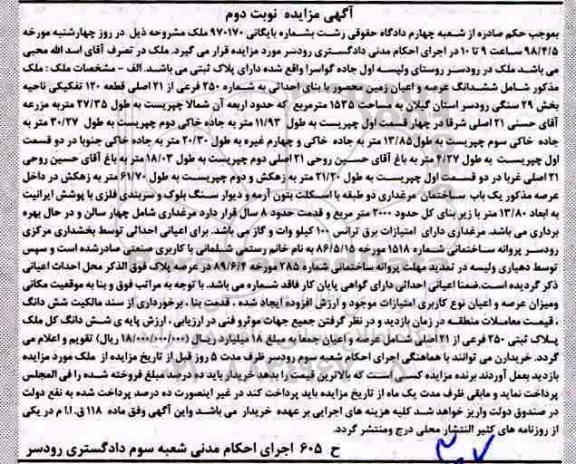 آگهی مزایده نوبت دوم
بموجب حکم صادره از شعبه چهارم دادگاه حقوقی رشت بشماره بایگانی ۹۷۰۱۷۰ ملک مشروحه ذیل در روز چهارشنبه مورخه
۹۸/۴/۵ ساعت ۹ تا ۱۰ در اجرای احکام مدنی دادگستری رودسر مورد مزایده قرار می گیرد. ملک در تصرف آقای اسد الله محبی
می باشد ملک در رودسر روستای ولیسه اول جاده گواسرا واقع شده دارای پلاک ثبتی می باشد. الف - مشخصات ملک : ملک
مذکور شامل ششدانگ عرصه و اعیان زمین محصور با بنای احداثی به شماره ۲۵۰ فرعی از ۲۱ اصلی قطعه ۱۲۰ تفکیکی ناحیه
بخش ۲۹ سنگی رودسر استان گیلان به مساحت ۱۵۳۵ مترمربع که حدود اربعه آن شمالا چپریست به طول ۲۷/۳۵ متر به مزرعه
آقای حسنی ۲۱ اصلی شرقا در چهار قسمت اول چپریست به طول ۱۱/۹۳ متر به جاده خاکی دوم چپریست به طول ۳۰/۲۷ متر به
جاده خاکی سوم چپریست به طول ۱۳/۸۵ متر به جاده خاکی و چهارم غیره به طول ۲۰/۳۰ متر به جاده خاکی جنوبا در دو قسمت
اول چپریست به طول ۴/۲۷ متر به باغ آقای حسین روحی ۲۱ اصلی دوم چپریست به طول ۱۸/۰۳ متر به باغ آقای حسین روحی
۲۱ اصلی غربا در دو قسمت اول چپریست به طول ۲۱/۲۰ متر به زهکش و دوم چپریست به طول ۶۱/۷۰ متر به زهکش در داخل
عرصه مذکور یک باب ساختمان مرغداری دو طبقه با اسکلت بتون آرمه و دیوار سنگ بلوک و سربندی فلزی با پوشش ایرانیت
به ابعاد ۱۳/۸۰ متر با زیر بنای کل حدود ۲۰۰۰ متر مربع و قدمت حدود ۸ سال قرار دارد مرغداری شامل چهار سالن و در حال بهره
برداری می باشد. مرغداری دارای امتیازات برق ترانس ۱۰۰ کیلو وات و گاز می باشد. برای اعیانی احداثی توسط بخشداری مرکزی
رودسر پروانه ساختمانی شماره ۱۵۱۸ مورخه ۸۶/۵/۱۵ به نام خانم رستمی شلمانی با کاربری صنعتی صادرشده است و سپس
توسط دهیاری ولیسه در تمدید مهلت پروانه ساختمانی شماره ۲۸۵ مورخه ۸۹/۶/۴ در عرصه پلاک فوق الذکر محل احداث اعیانی
ذکر گردیده است.ضمنا اعیانی احداثی دارای گواهی پایان کار فاقد شماره می باشد. با توجه به مراتب فوق و بنا به موقعیت مکانی
ومیزان عرصه و اعیان نوع کاربری امتیازات موجود و ارزش افزوده ایجاد شده ، قدمت بنا ، برخورداری از سند مالکیت شش دانگ
، قیمت معاملات منطقه در زمان بازدید و در نظر گرفتن جمیع جهات موثرو فنی در ارزیابی ، ارزش پایه ی شش دانگ کل ملک
پلاک ثبتی ۲۵۰ فرعی از ۲۱ اصلی شامل عرصه و اعیان جمعا به مبلغ ۱۸ میلیارد ریال (۱۸/۰۰۰/۰۰۰/۰۰۰ ریال) تقویم و اعلام می
گردد. خریدارن می توانند با هماهنگی اجرای احکام شعبه سوم رودسر ظرف مدت ۵ روز قبل از تاریخ مزایده از ملک مورد مزایده
بازدید بعمل آوردند برنده مزایده کسی است که بالاترین قیمت را بدهد خریدار باید ده درصد مبلغ فروخته شده را فی المجلس
پرداخت نماید و مابقی ظرف مدت یک ماه از تاریخ مزایده باید پرداخت کند در غیر اینصورت ده درصد پرداخت شده به نفع دولت
در صندوق دولت واریز خواهد شد کلیه هزینه های اجرایی بر عهده خریدار می باشد واین آگهی وفق ماده ۱۱۸ ق.ا.م در یکی
از روزنامه های کثیر النتشار محلی درج ومنتشر گردد.
ح ۶۰۵ اجرای احکام مدنی شعبه سوم دادگستری رودسر